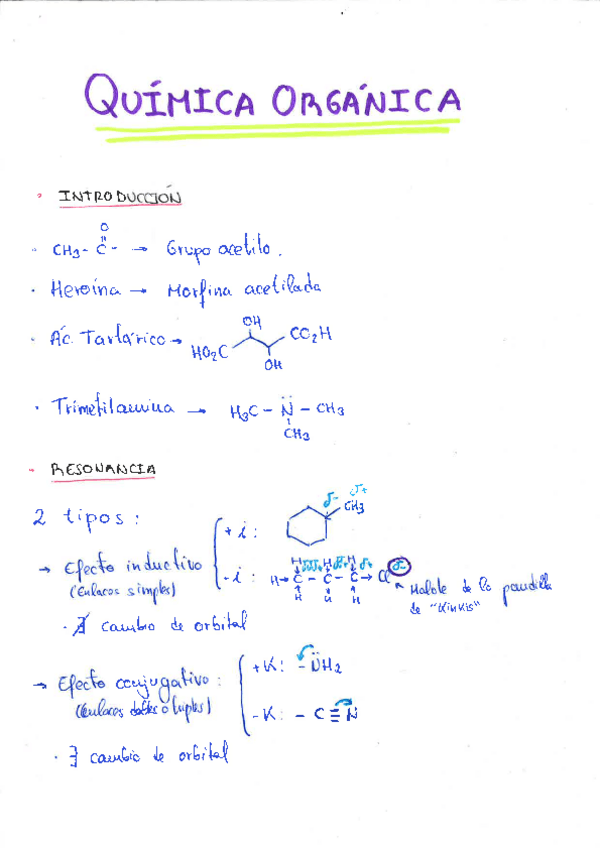 QUÍMICA ORGÁNICA
· INTRODUCCIÓN
O
· CH3 - C - → Grupo acetilo.
· Heroína → Morfina acetilada
· Ác. Tartárico → HO2C OH OH CO2H
· Trimetilamina → H3C - N̈ - CH3
CH3
- RESONANCIA
2 tipos:
+i: δ- δ+ CH3
→ Efecto inductivo
(Enlaces simples)
-i: H → C - C - C → Cl δ-
H H H
H H H
Malote de la pandilla
de "Kinkis"
· ∄ cambio de orbital
→ Efecto conjugativo:
(Enlaces dobles o triples)
+K: - N̈H2
-K: - C ≡ N
· ∃ cambio de orbital